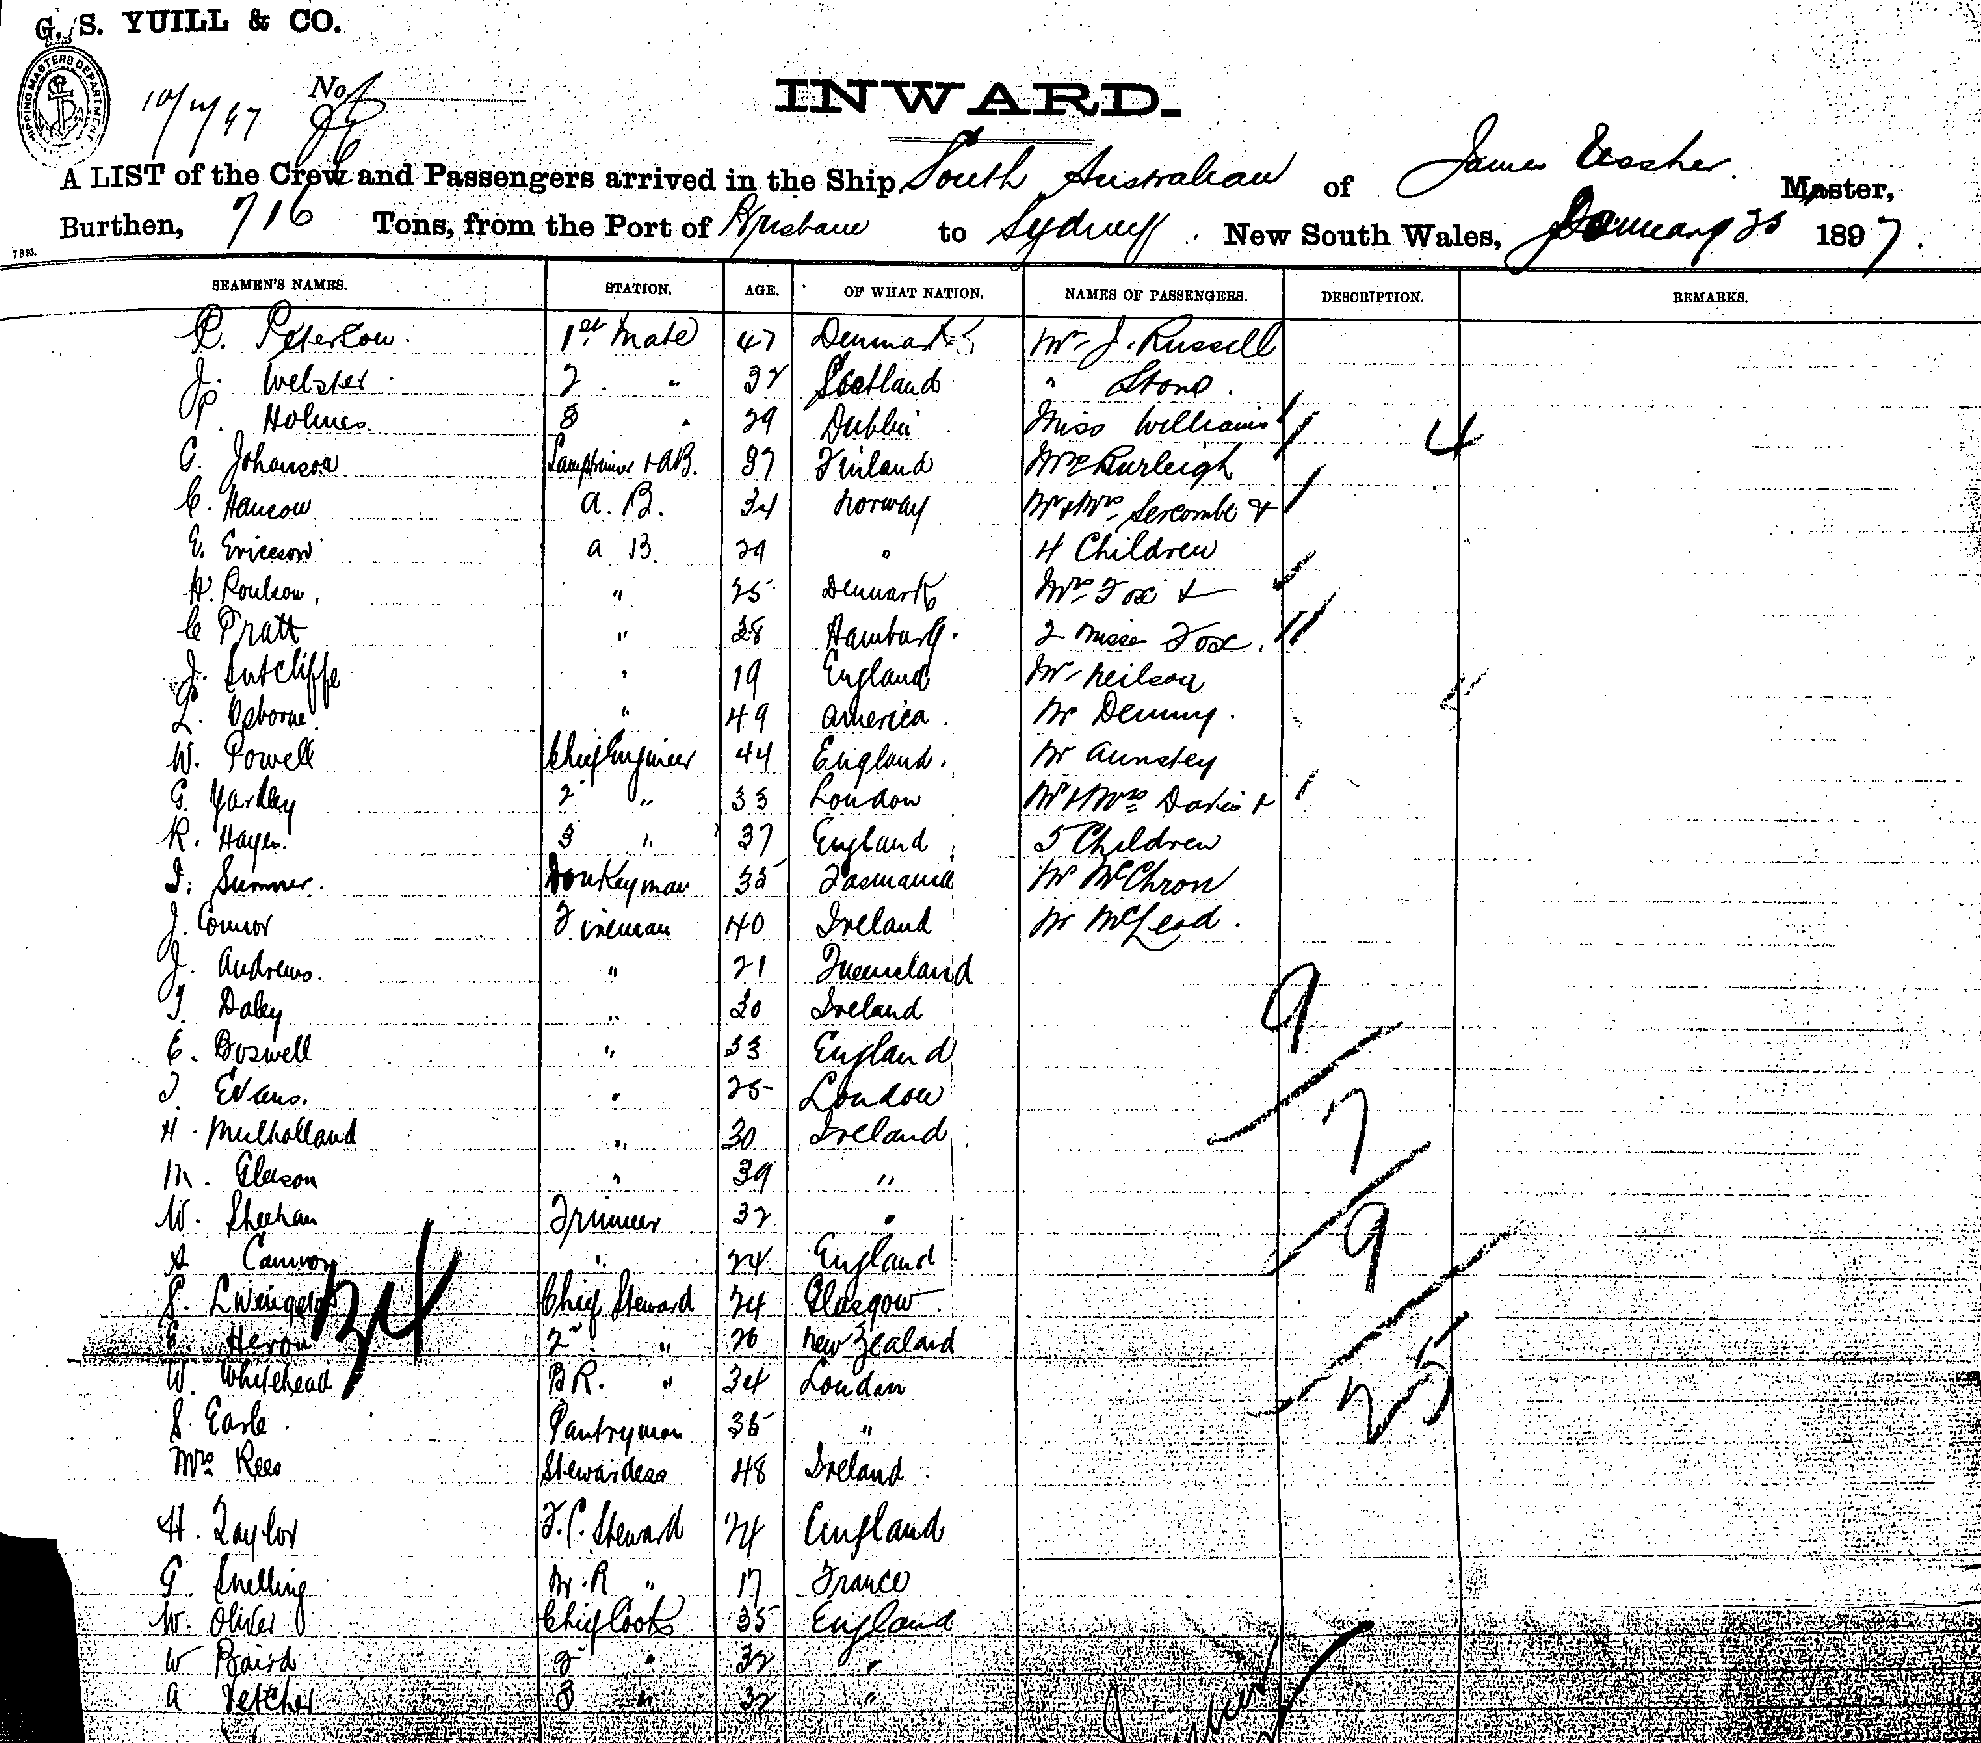 G. S. YUILL & CO.
SHIPPING MASTERS DEPARTMENT
No.
INWARD.
A LIST of the Crew and Passengers arrived in the Ship South Australian of James Ussher. Master,
Burthen, 716 Tons, from the Port of Brisbane to Sydney. New South Wales, January 25 1897.
SEAMEN'S NAMES. STATION. AGE. OF WHAT NATION. NAMES OF PASSENGERS. DESCRIPTION. REMARKS.
1st Mate 47 Denmark Mr J. Russell
J. Webster 2 " 32 Scotland " Stone.
Holmes 3 " 29 Dublin Miss Williams
C. Johanson Lamptrimer + AB. 37 Finland Burleigh 4
C. Hanson A. B. 34 Norway Mr & Mrs Sercombe &
E. Ericson A B. 29 " 4 Children
H. Poulson. " 25 Denmark Mrs Fox &
C Pratt " 38 Hamburg. 2 Misses Fox.
J. Sutcliffe " 19 England Mr Neilson
L. Osborne. " 49 America. Mr Denny.
W. Powell Chief Engineer 44 England. Mr Aunstey
G. Yardley 2 " 33 London Mr & Mrs Davis &
R. Hayes. 3 " 37 England 5 Children
Sumner. Donkeyman 35 Tasmania Mr McChron
J. Connor Fireman 40 Ireland Mr McLeod.
J. Andrews. " 21 Queensland
T. Daley " 30 Ireland 9
E. Boswell " 33 England
T. Evans. " 25 London
H. Mulholland " 30 Ireland 7
M. Gleason " 39 "
W. Sheehan Trimmer 32 "
A Cannon " 24 England 9
Chief Steward 24 Glasgow
E. Heron 2 " 26 New Zealand
W. Whitehead BR. " 34 London 25
S. Earle. Pantryman 35 "
Mrs Rees Stewardess 48 Ireland.
H. Taylor F.C. Steward 24 England
G. Snelling " 17 France
W. Oliver Chief Cook 35 England
W Baird 2 " 32 "
A Fetcher 3 " 32 "